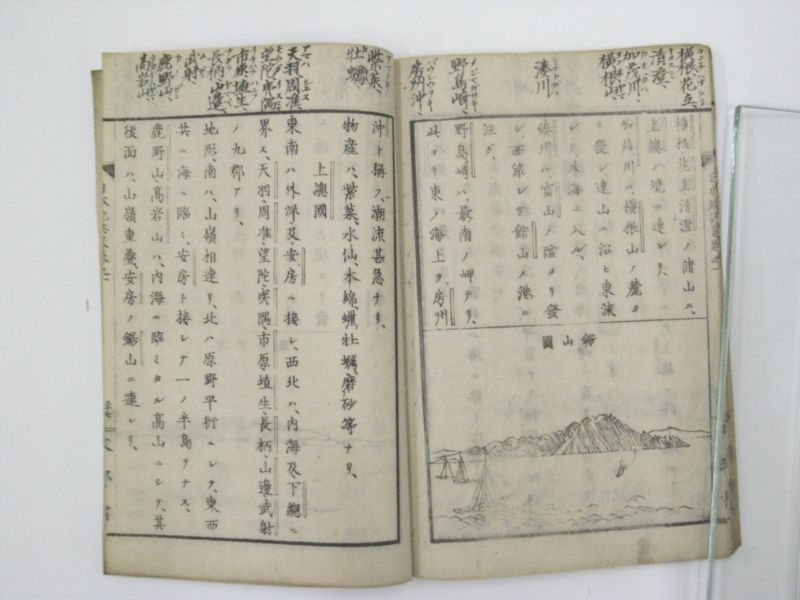 横根花立清澄ノ諸山ハ、
上總ノ境ニ連レリ、
加茂川ハ、横根山ノ麓ヨ
リ發シ、連山ニ沿ヒ東流
シテ、外海ニ入ル、
湊川ハ、富山ノ陰ヨリ發
シ、西流シテ館山ノ港ニ
注グ、
野島崎ハ、最南ノ岬ナリ、
此ヨリ東ノ海上ヲ、房州
鋸山圖
沖ト稱ス、潮流甚急ナリ、
物産ハ、紫菜、水仙、木綿、蠟、牡蠣、磨砂等ナリ、
上總國
東南ハ外洋及安房ニ接シ、西北ハ、内海及下總ニ
界ス、天羽周准望陀夷隅市原埴生長柄山邊武射
ノ九郡アリ、
地形、南ハ、山嶺相連リ、北ハ原野平衍ニシテ、東西
共ニ海ニ臨ミ、安房ト接シテ一ノ半島ヲナス、
鹿野山高岩山ハ、内海ニ臨ミタル高山ニシテ、其
後面ハ、山嶺重疊、安房ノ鋸山ニ連レリ、
横根花立、
清澄、
加茂川、
横根山、
湊川
野島崎、
房州沖、
紫菜、
牡蠣
天羽周准
望陀夷隅
市原埴生
長柄山邊
武射
鹿野山、
高岩山、
文部省